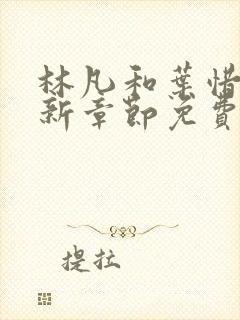 林凡和葉惜
新章節免費
提拉